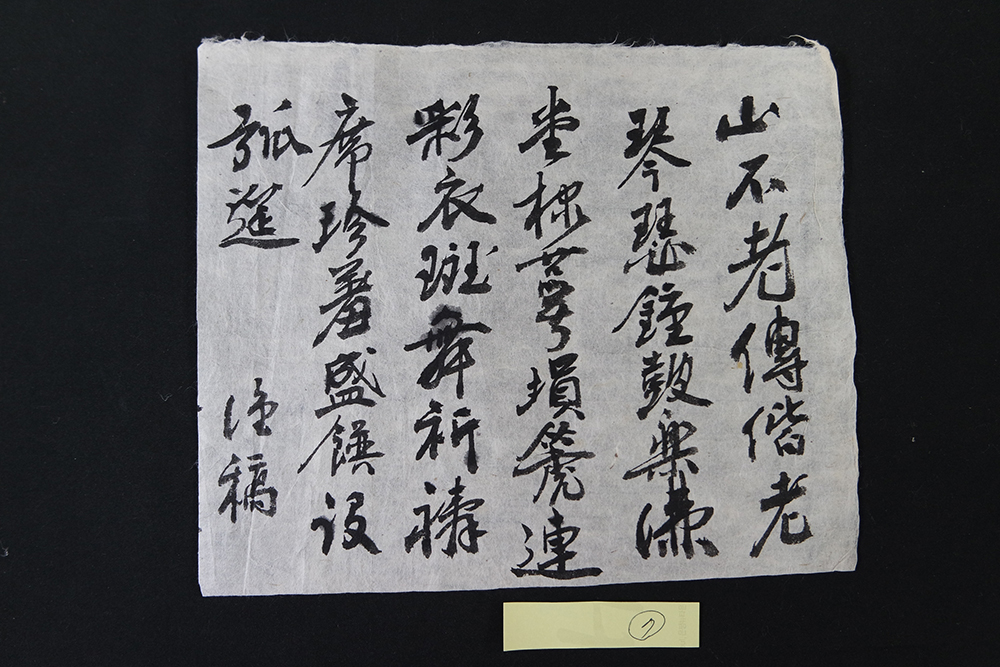 山不老傳偕老
琴瑟鐘鼓樂
堂棣萼塤篪連
彩衣斑舞祈禱
席珍羞盛饌設
弧筵 謹稿
7